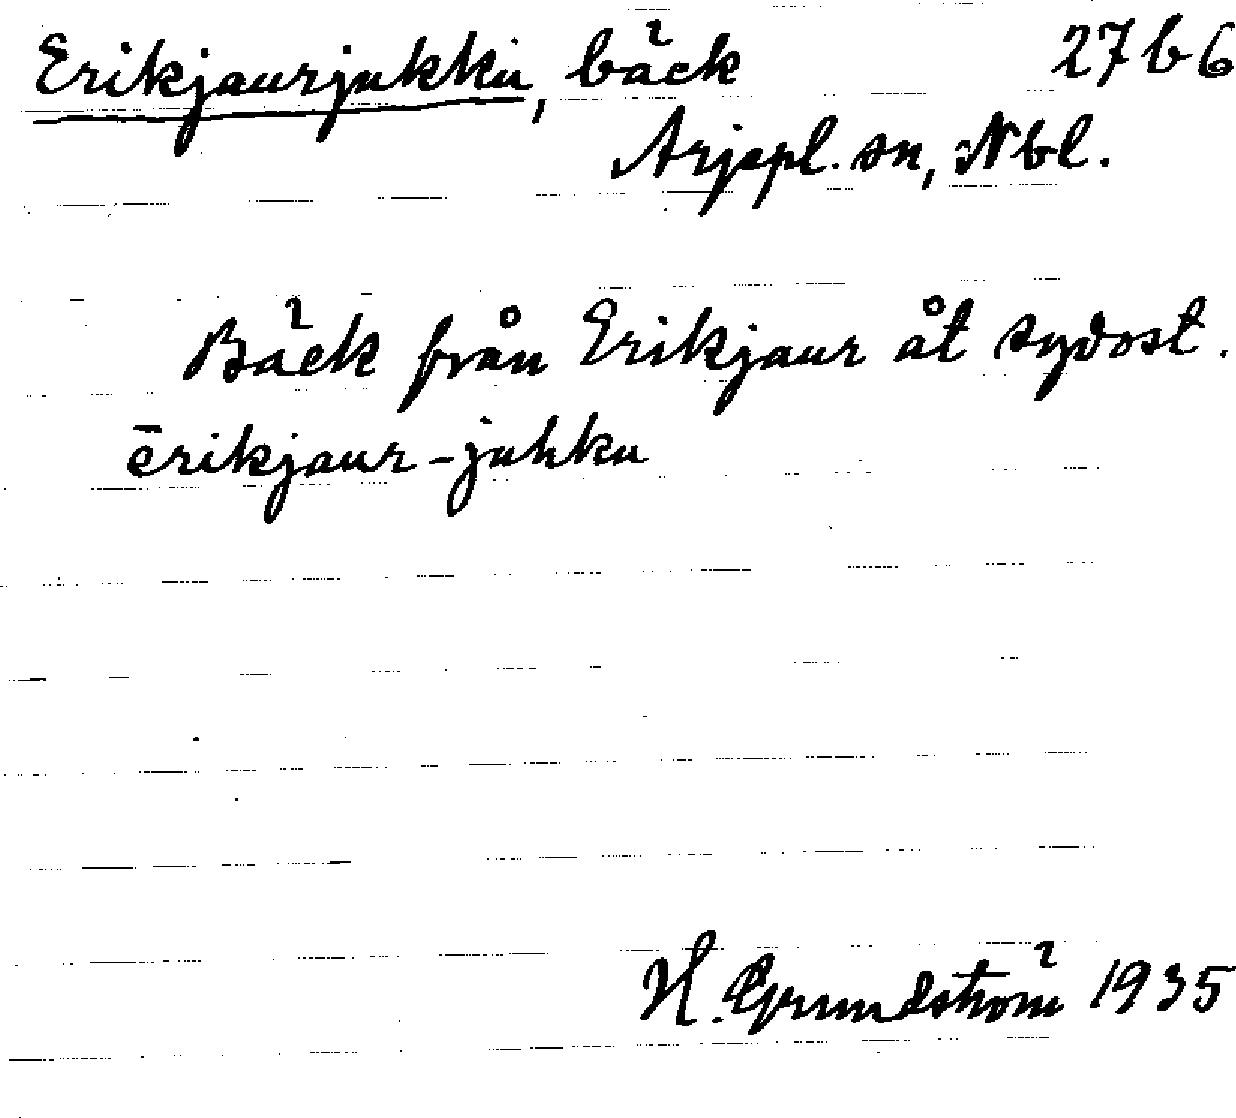 Erikjaurjukku, bäck 27 b 6
Arjepl. sn, Nbl.
Bäck från Erikjaur åt sydost.
ērikjaur-juhku
H. Grundström 1935